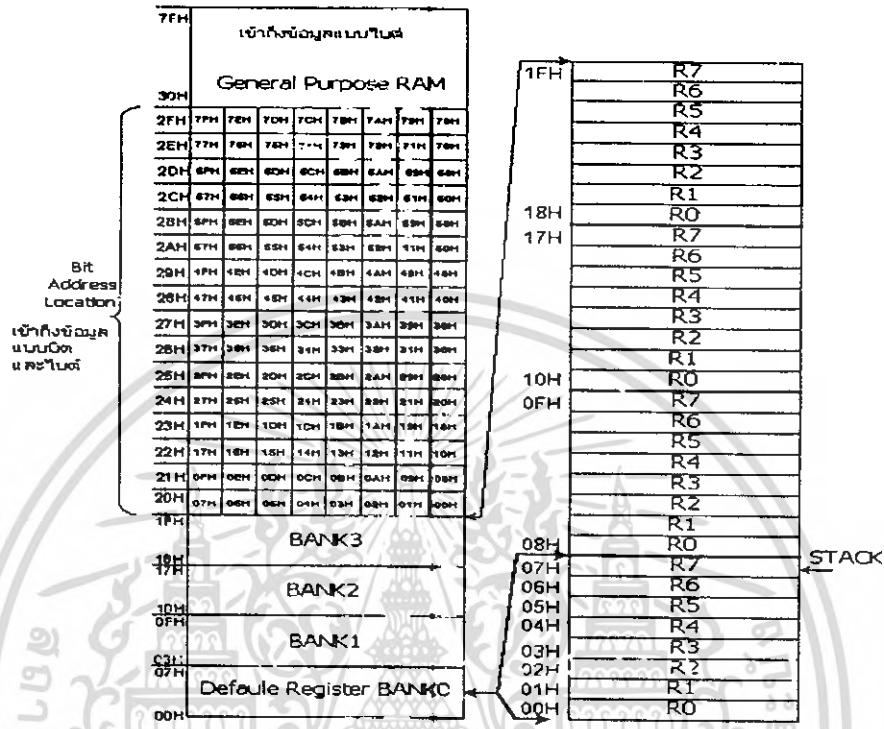 7FH
เข้าถึงข้อมูลแบบไบต์
General Purpose RAM
30H
2FH 7FH 7EH 7DH 7CH 7BH 7AH 79H 78H
2EH 77H 76H 75H 73H 72H 71H 70H
2DH 6FH 6EH 6DH 6CH 6BH 6AH 69H 68H
2CH 67H 66H 65H 64H 63H 62H 61H 60H
2BH 5FH 5EH 5DH 5CH 5BH 5AH 59H 58H
2AH 57H 56H 55H 54H 53H 52H 11H 50H
29H 4FH 4EH 4DH 4CH 4BH 4AH 49H 48H
28H 47H 46H 45H 44H 43H 42H 41H 40H
27H 3FH 3EH 3DH 3CH 3BH 3AH 39H 38H
26H 37H 36H 35H 34H 33H 32H 31H 30H
25H 2FH 2EH 2DH 2CH 2BH 2AH 29H 28H
24H 27H 26H 25H 24H 23H 22H 21H 20H
23H 1FH 1EH 1DH 1CH 1BH 1AH 19H 18H
22H 17H 16H 15H 14H 13H 12H 11H 10H
21H 0FH 0EH 0DH 0CH 0BH 0AH 09H 08H
20H 07H 06H 05H 04H 03H 02H 01H 00H
Bit
Address
Location
เข้าถึงข้อมูล
แบบบิต
และไบต์
1FH
BANK3
18H
17H
BANK2
10H
0FH
BANK1
07H
Defaule Register BANK0
00H
1FH R7
R6
R5
R4
R3
R2
R1
18H R0
17H R7
R6
R5
R4
R3
R2
R1
10H R0
0FH R7
R6
R5
R4
R3
R2
R1
08H R0
07H R7 STACK
06H R6
05H R5
04H R4
03H R3
02H R2
01H R1
00H R0